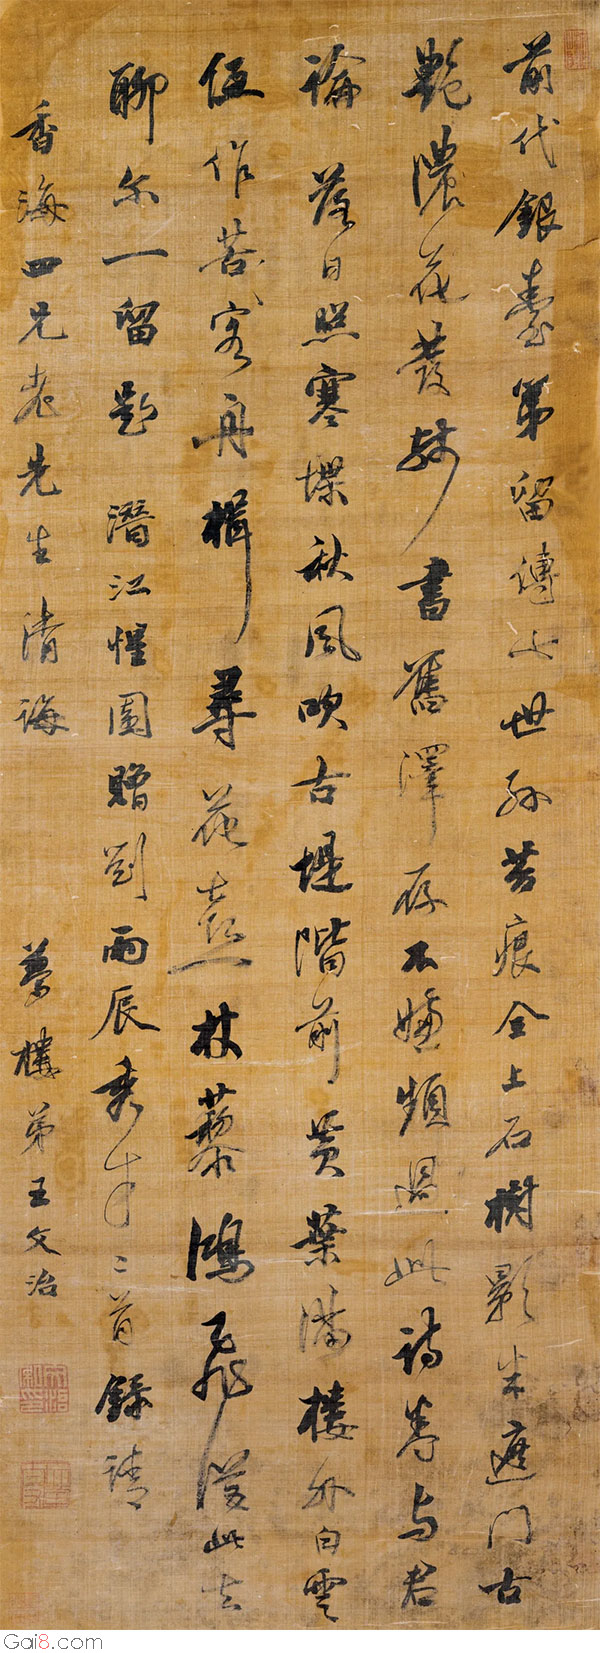 前代銀臺第留傳七世孫苔痕全上石樹影半遮門古
艷濃花發妙書舊澤存不嫌頻過此詩卷与君
論 落日照寒堞秋風吹古堤階前黄葉滿樓外白雲
低作苦客舟楫尋花意杖藜鴻飛從此去
聊尔一留題 潛江惺園贈劉雨辰秀才二首錄請
香海四兄老先生清誨
夢樓弟王文治
Gai8.com